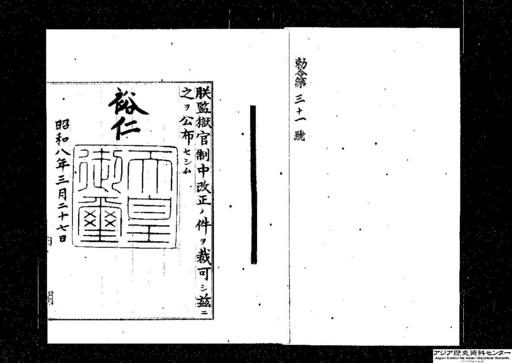 勅令第三十一號
朕監獄官制中改正ノ件ヲ裁可シ茲ニ
之ヲ公布セシム
裕仁
天皇御璽
昭和八年三月二十七日
アジア歴史資料センター
Japan Center for Asian Historical Records